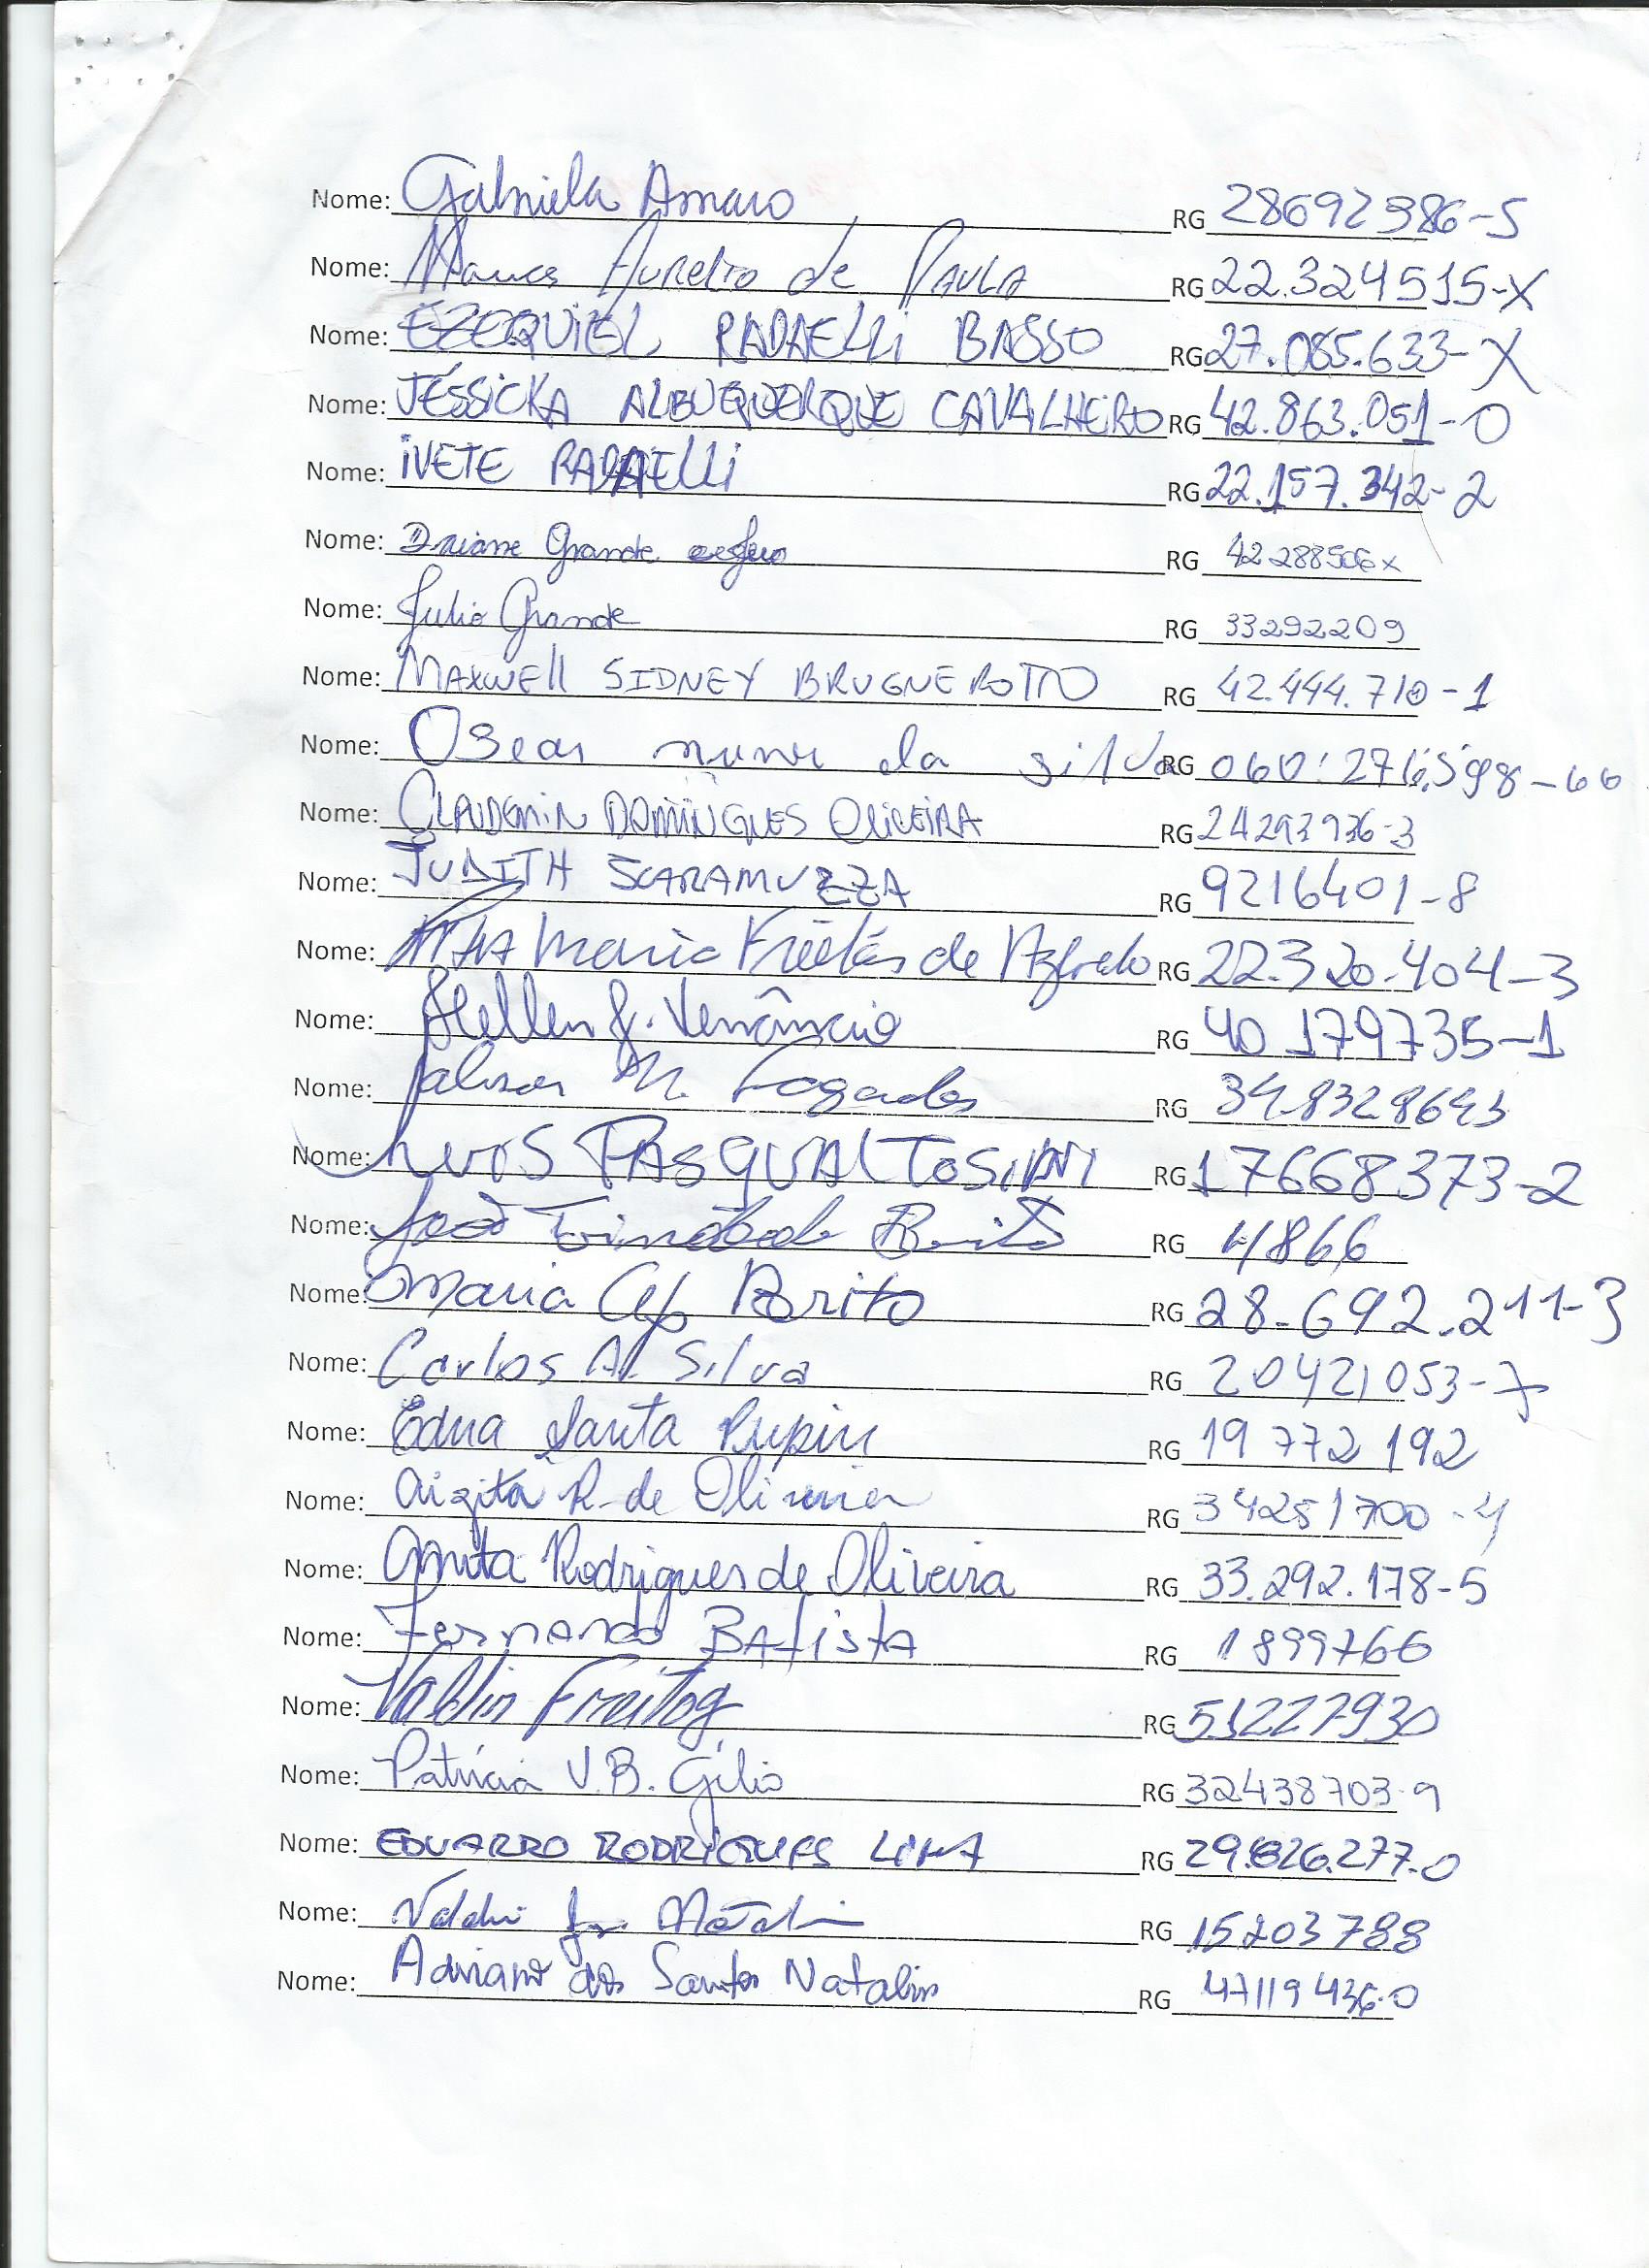 Nome: Gabriela Amaro RG 28692386-5
Nome: Marcos Aurelio de PAULA RG 22.324515-X
Nome: EZEQUIEL RADAELLi BASSO RG 27.085.633-X
Nome: JÉSSICKA ALBUQUERQUE CAVALHEIRO RG 42.863.051-0
Nome: iVETE RADAELLi RG 22.157.342-2
Nome: Grande RG 42288506x
Nome: Julio Grande RG 33292209
Nome: MAXWEll SIDNEY BRUGNEROTTO RG 42.444.710-1
Nome: Oseas nunes da silva RG 060.276.598-66
Nome: DOMINGUES OliVEIRA RG 24293936-3
Nome: JUDITH SCARAMUZZA RG 9216401-8
Nome: Maria Freitas de RG 22.320.404-3
Nome: Hellen J. Venâncio RG 40 179735-1
Nome: M. RG
Nome: PASQUAL TOSiNi RG 17668373-2
Nome: João Brito RG 4866
Nome: Maria Ap Brito RG 28.692.211-3
Nome: Carlos Al Silva RG 20421053-7
Nome: Edna Santa Pupin RG 19 772 192
Nome: R. de Oliveira RG 34251700-4
Nome: Anita Rodrigues de Oliveira RG 33.292.178-5
Nome: Fernando BAtistA RG 1899766
Nome: Freitag RG 51227930
Nome: Patricia V.B. Gilio RG 32438703-9
Nome: EDUARDO RODRIGUES LIMA RG 29.826.277-0
Nome: RG 15203788
Nome: Adriano dos Santos Natalin RG 47119436-0